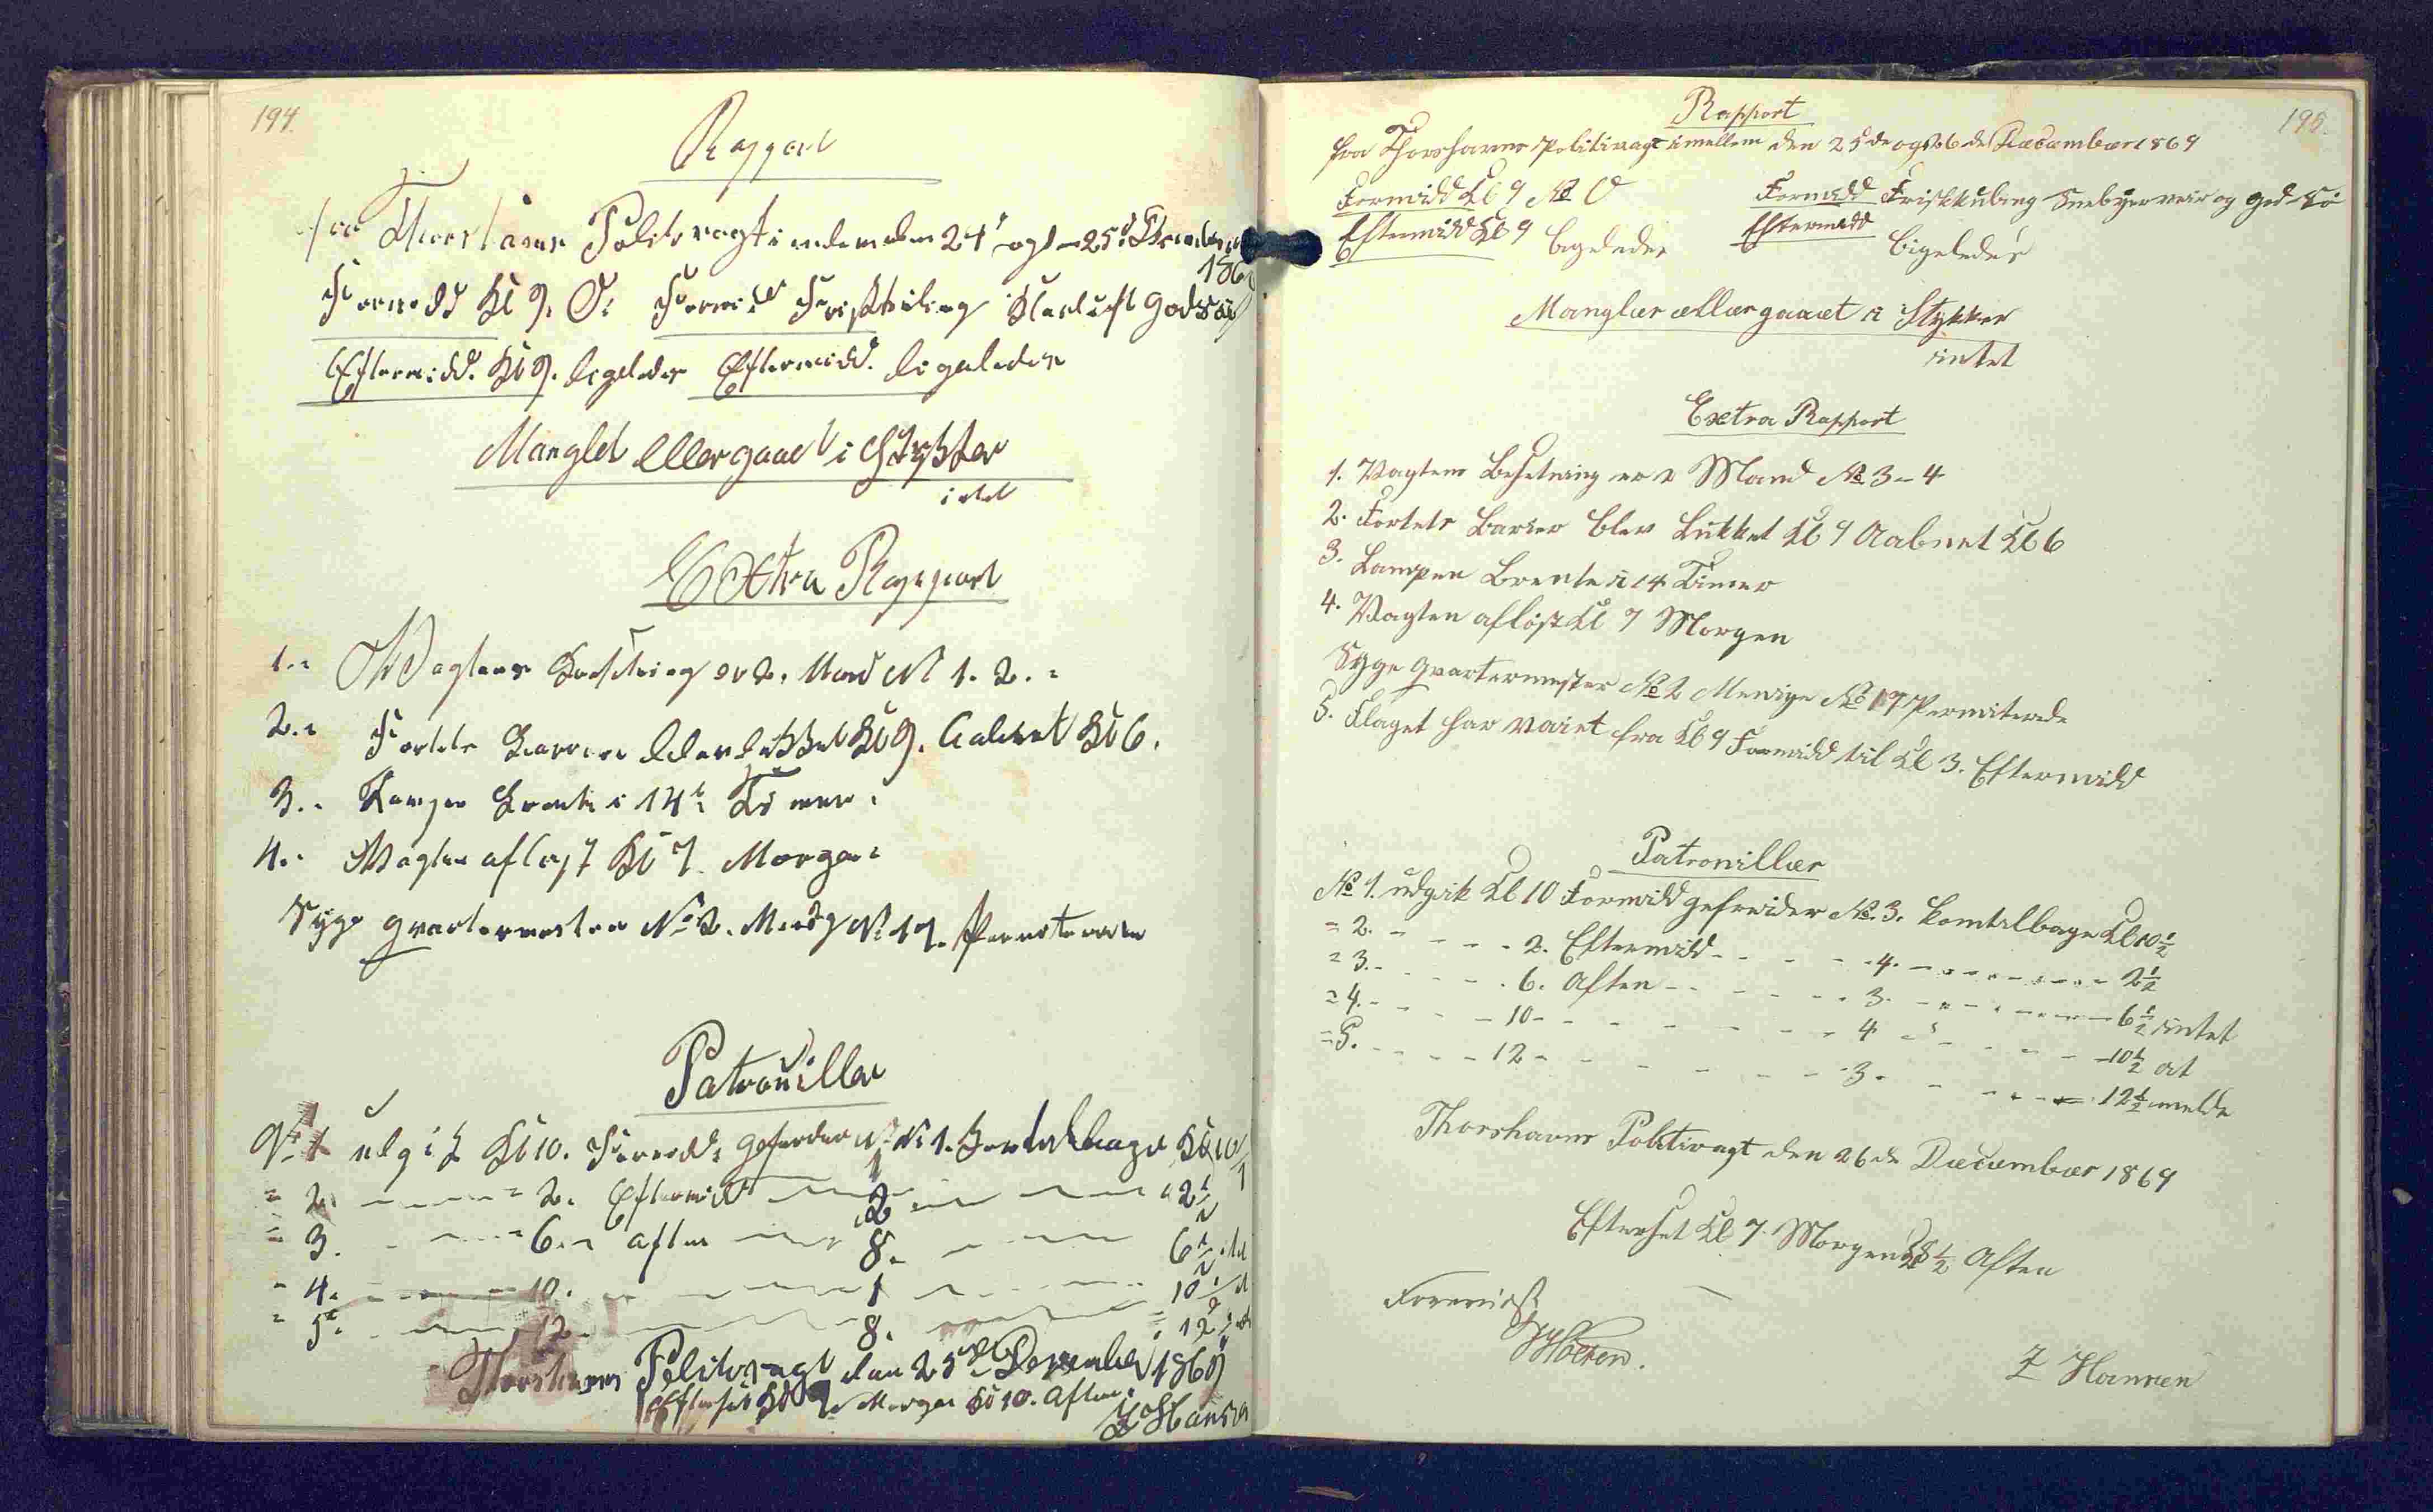 194.
Rapport
fra Thorshavns Politivagt imelem den 24d og den 25d December
186
Formidd Kl 9. O. Formid Friskkuling Klarluft God Sø
Eftermidd. Kl 9. ligeledes Eftermidd. ligeledes
Manglet eller gaaet i Stykker
intet
Extra Rapport
1. Vagtens Besetning er 2. Mand No 1. 2.
2. Fortets Barriere blev lukket Kl 9. Aabnet Kl 6.
3. Lampen Brente i 14 Timer.
4. Vagten afløst Kl 7. Morgen
Syge qvartermester No 2. Menig No 17. Permiterede
Patrouiller
No 1 udgik Kl 10. Formidd. gefreider No 1. komtilbage Kl 10
= 2. 2. Eftermidd 2 2 1/2
= 3. 6. aften 8. 6 1/2
- 4. 10. 1 10 1/2
- 5. 12. 8. 12 1/2
Thorshavns Politivagt den 25de December 1869
Efterset Kl 7 Morgen Kl 10. Aften.
Z Hansen
195.
Rapport
fra Thorshavns Politivagt imellem den 25de og 26de December 1869
Formidd Kl 9 No O Formidd Friskkuling Snebyerveir og god Sø
Eftermidd Kl 9 ligeledes Eftermidd ligeledes
Mangler eller gaaet i Stykker
intet
Extra Rapport
1. Vagtens Besetning er 2 Mand No 3-4
2. Fortets Barier blev Lukket Kl 9 Aabnet Kl 6
3. Lampen Brente i 14 Timer
4. Vagten afløst Kl 7 Morgen
Syge qvartermester No 2 Menige No 17 Permiterede
5. Flaget har vaiet fra Kl 9 Formidd til Kl 3. Eftermidd
Patrouiller
No 1. udgik Kl 10 Formidd gefreider No. 3. komtilbage Kl 10 1/2
= 2. - - - - 2. Eftermidd - - - - 4. - - - - 2 1/2
= 3. - - - - 6. Aften - - - - 3. - - - - 6 1/2 intet
= 4. - - - - 10 - - - - 4 - - - - 10 1/2 at
= 5. - - - - 12 - - - - 3. - - - - 12 1/2 melde
Thorshavns Politivagt den 26de December 1869
Efterset Kl 7 Morgen Kl 8 1/2 Aften
Foreviist
HHolten.
Z Hansen